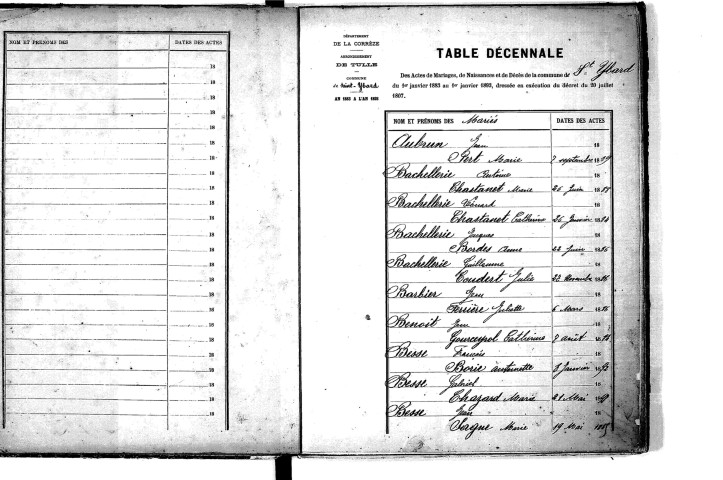 NOM ET PRÉNOMS DES
DATES DES ACTES
18
18
18
18
18
18
18
18
18
18
18
18
18
18
18
18
18
18
18
DÉPARTEMENT
DE LA CORRÈZE
ARRONDISSEMENT
DE TULLE
COMMUNE
de Saint-Ybard
AN 1883 A L'AN 1892
TABLE DÉCENNALE
Des Actes de Mariages, de Naissances et de Décès de la commune de St Ybard
du 1er janvier 1883 au 1er janvier 1893, dressée en exécution du décret du 20 juillet
1807.
NOM ET PRÉNOMS DES Mariés
DATES DES ACTES
Aubrun Jean 18
Pert Marie 7 septembre 18
Bachellerie Antoine 18
Chastanet Marie 26 Juin 18
Bachellerie Léonard 18
Chastanet Catherine 26 Janvier 18
Bachellerie Jacques 18
Bordes Anne 22 Juin 1886
Bachellerie Guillaume 18
Coudert Julie 22 Novembre 1886
Barbier Jean 18
Ferrière Juliette 6 Mars 1886
Benoit Jean 18
Catherine 7 août 18
Besse François 18
Borie antoinette 8 Janvier 18
Besse Gabriel 18
Chazard Marie 28 Mai 18
Besse Jean
Marie 19 Mai